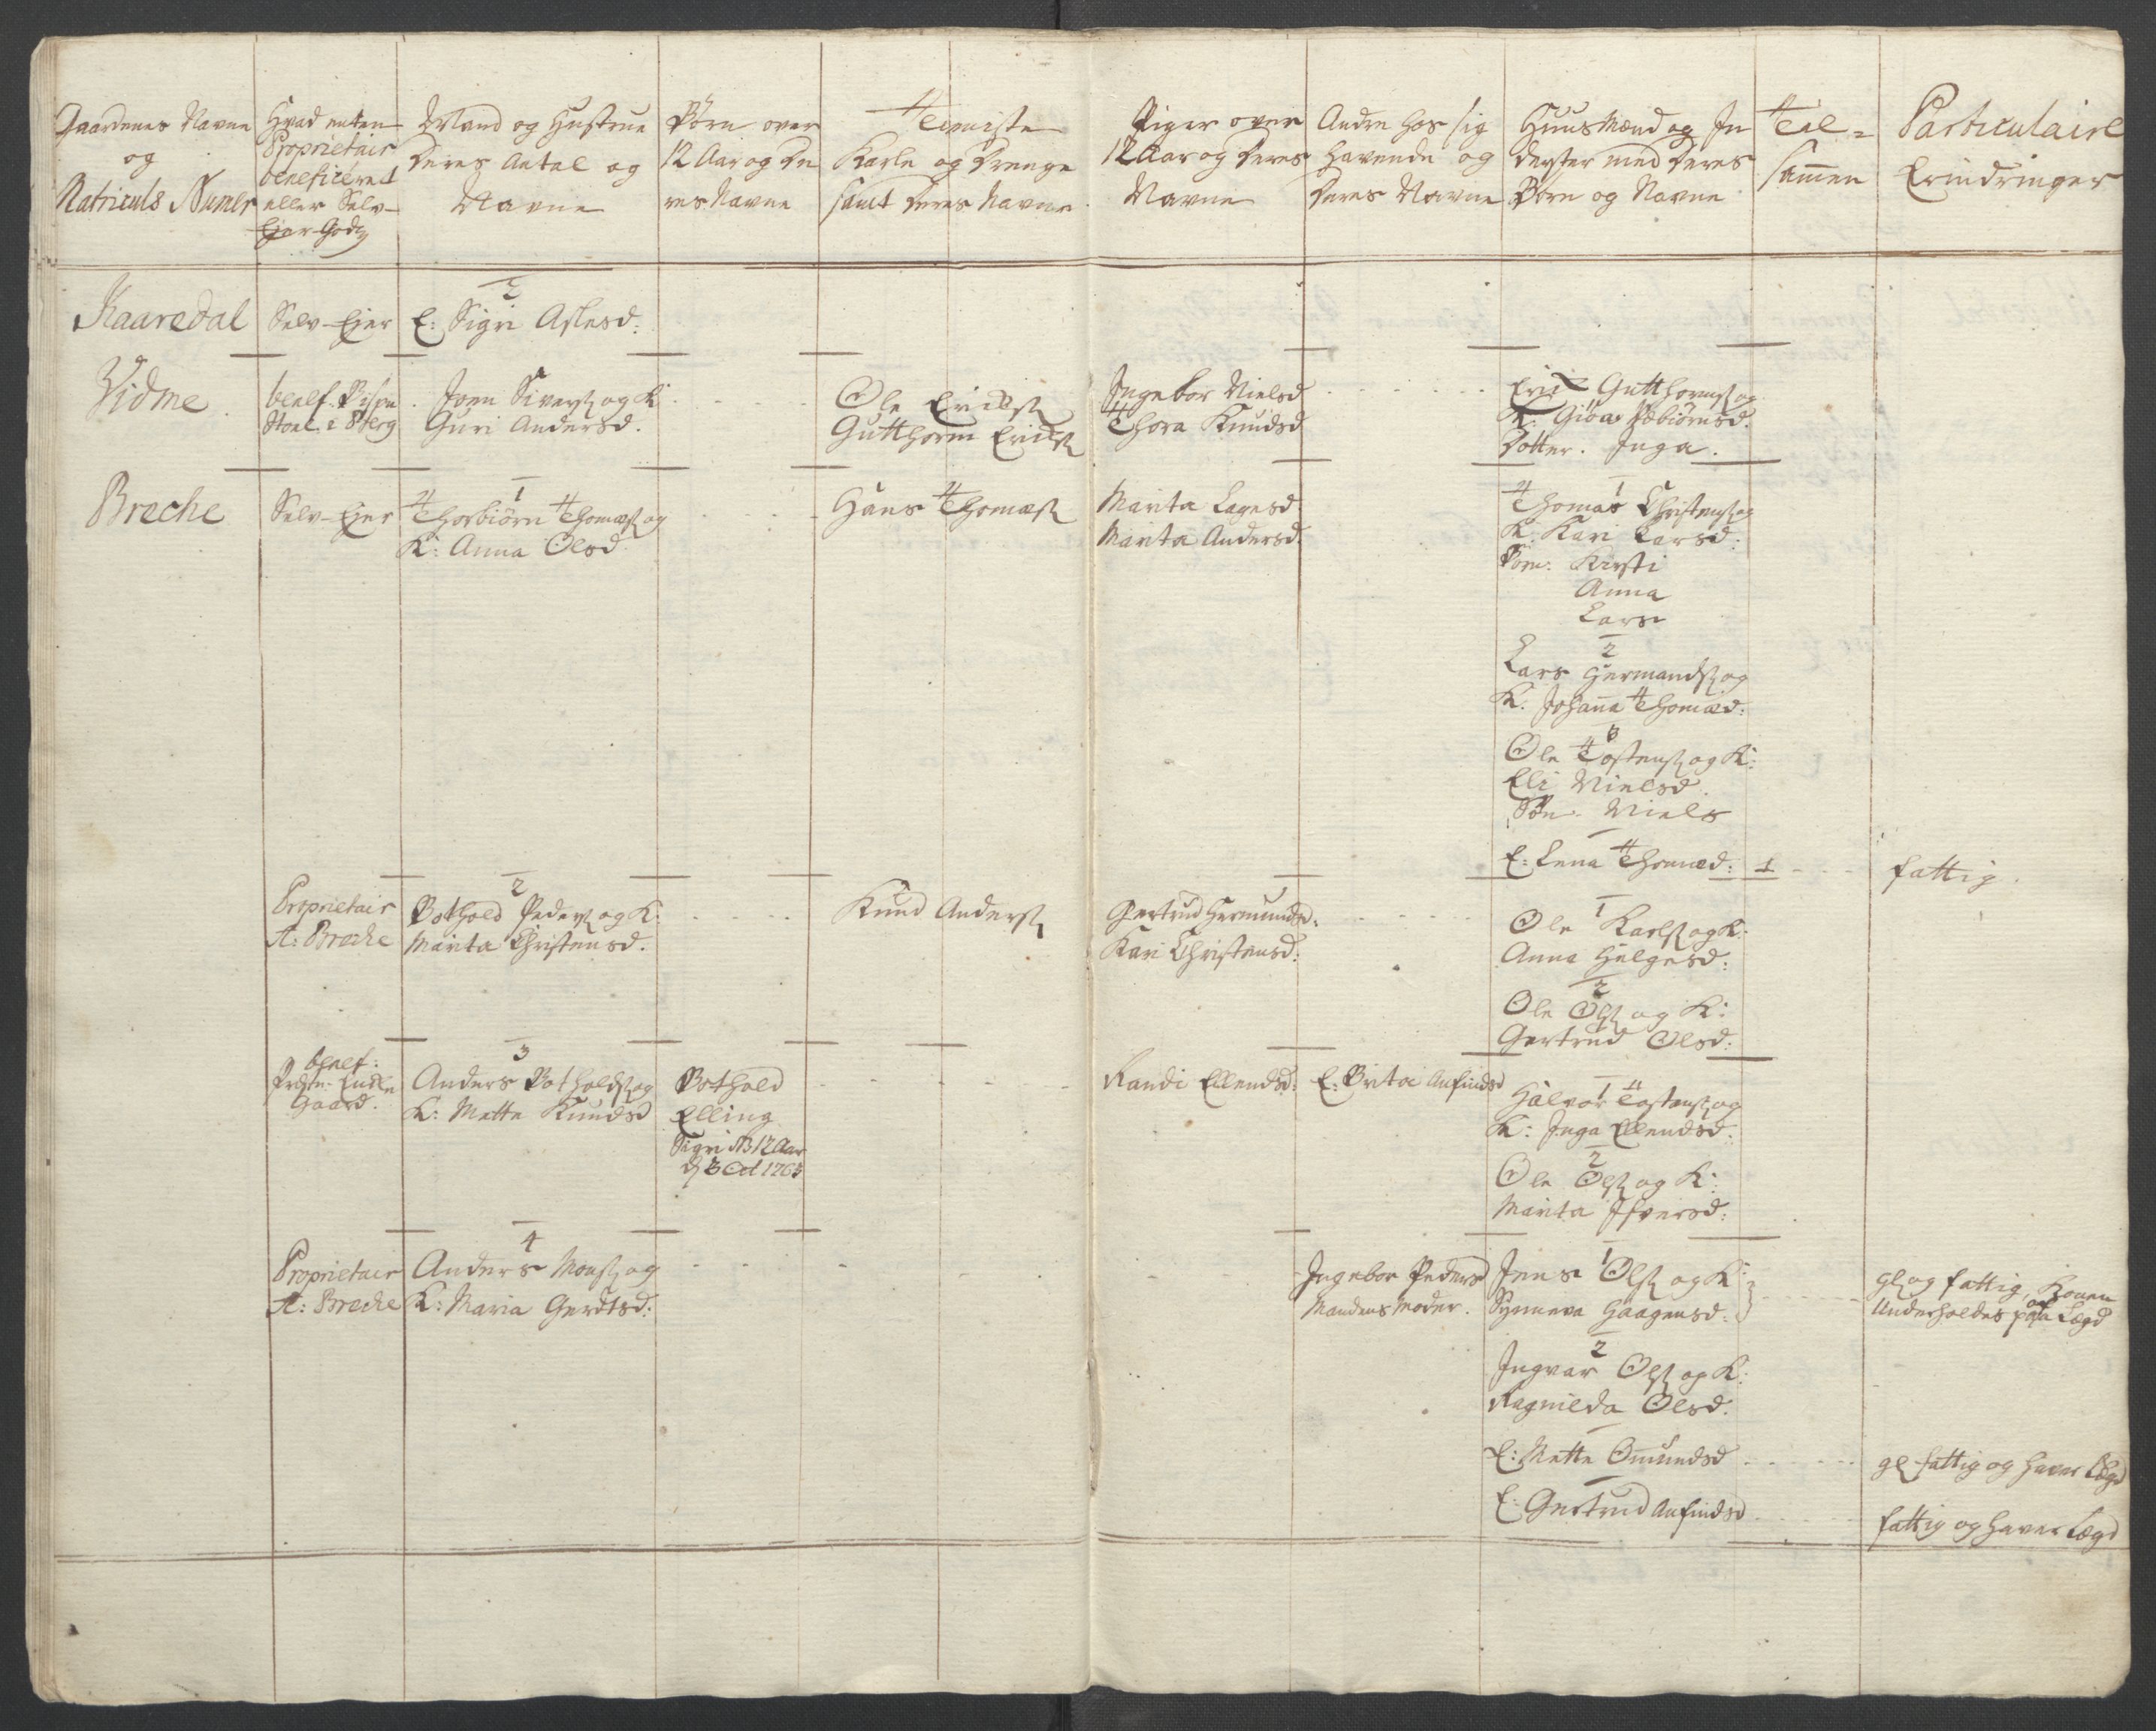 Gaardenes Navne
og
Matriculs Numer
Hvad enten
Proprietair
beneficeret
eller Selv-
Ejer-Gods
Mand og Hustrue
deres Antal og
Navne
Børn over
12 Aar og De
res Navne
Tieniste
Karle og Drenge
samt deres Navne
Piger over
12 Aar og deres
Navne
Andre hos sig
havende og
deres Navne
Huus Mænd og In
derster med deres
Børn og Navne
Til-
sammen
Particulaire
Erindringer
Kaaredal
Selv-Ejer
2
E: Sigri Aslesd:
Vidme
benef. Bispe
Stoel i Berg
1
Joen Sivers. og K
Guri Andersd.
Ole Ericks.
Gutthorm Ericks.
Ingebor Nielsd
Thora Knudsd
Eric Gutthorms. og
K: Giøa Æbiørnsd.
Dotter. Inga.
Breche
Selv-Ejer
1
Thorbiørn Thomæs. og
K: Anna Olsd
Hans Thomæs.
Marita Lagesd
Marita Andersd
1
Thomas Christens. og
K. Kari Larsd:
Børn: Kirsti
Anna
Lars
2
Lars Hermands. og
K. Johanna Thomæd:
3
Ole Tostens. og K:
Eli Nielsd.
Søn. Niels
E: Lena Thomæd: 1
fattig.
Proprietair
A: Breche
2
Bothold Peders. og K:
Marita Christensd.
Knud Anders.
Gertrud Hermundsd:
Kari Christensd:
1
Ole Karls. og K:
Anna Helgesd:
2
Ole Ols. og K:
Gertrud Olsd:
benef:
Præste-Enke
Gaard.
3
Anders Botholds. og
K: Mette Knudsd
Bothold
Elling
Sigri NB 12 Aar
d. 3 Oct 1763
Randi Ellendsd:
E: Brita Anfindsd
1
Halvor Tostens. og
K: Inga Ellendsd:
2
Ole Ols. og K:
Marita Ifversd:
Proprietair
A: Breche
4
Anders Mons. og
K: Maria Gerdtsd:
Ingebor Pedersd
Mandens Moder.
1
Jens Ols. og K:
Synneva Haagensd:
gl og fattig, Konen
Underholdes paa Lægd
2
Ingvar Ols. og K:
Ragnilda Olsd:
E: Mette Omundsd
gl fattig og haver Lægd
E: Gertrud Anfindsd
fattig og haver Lægd